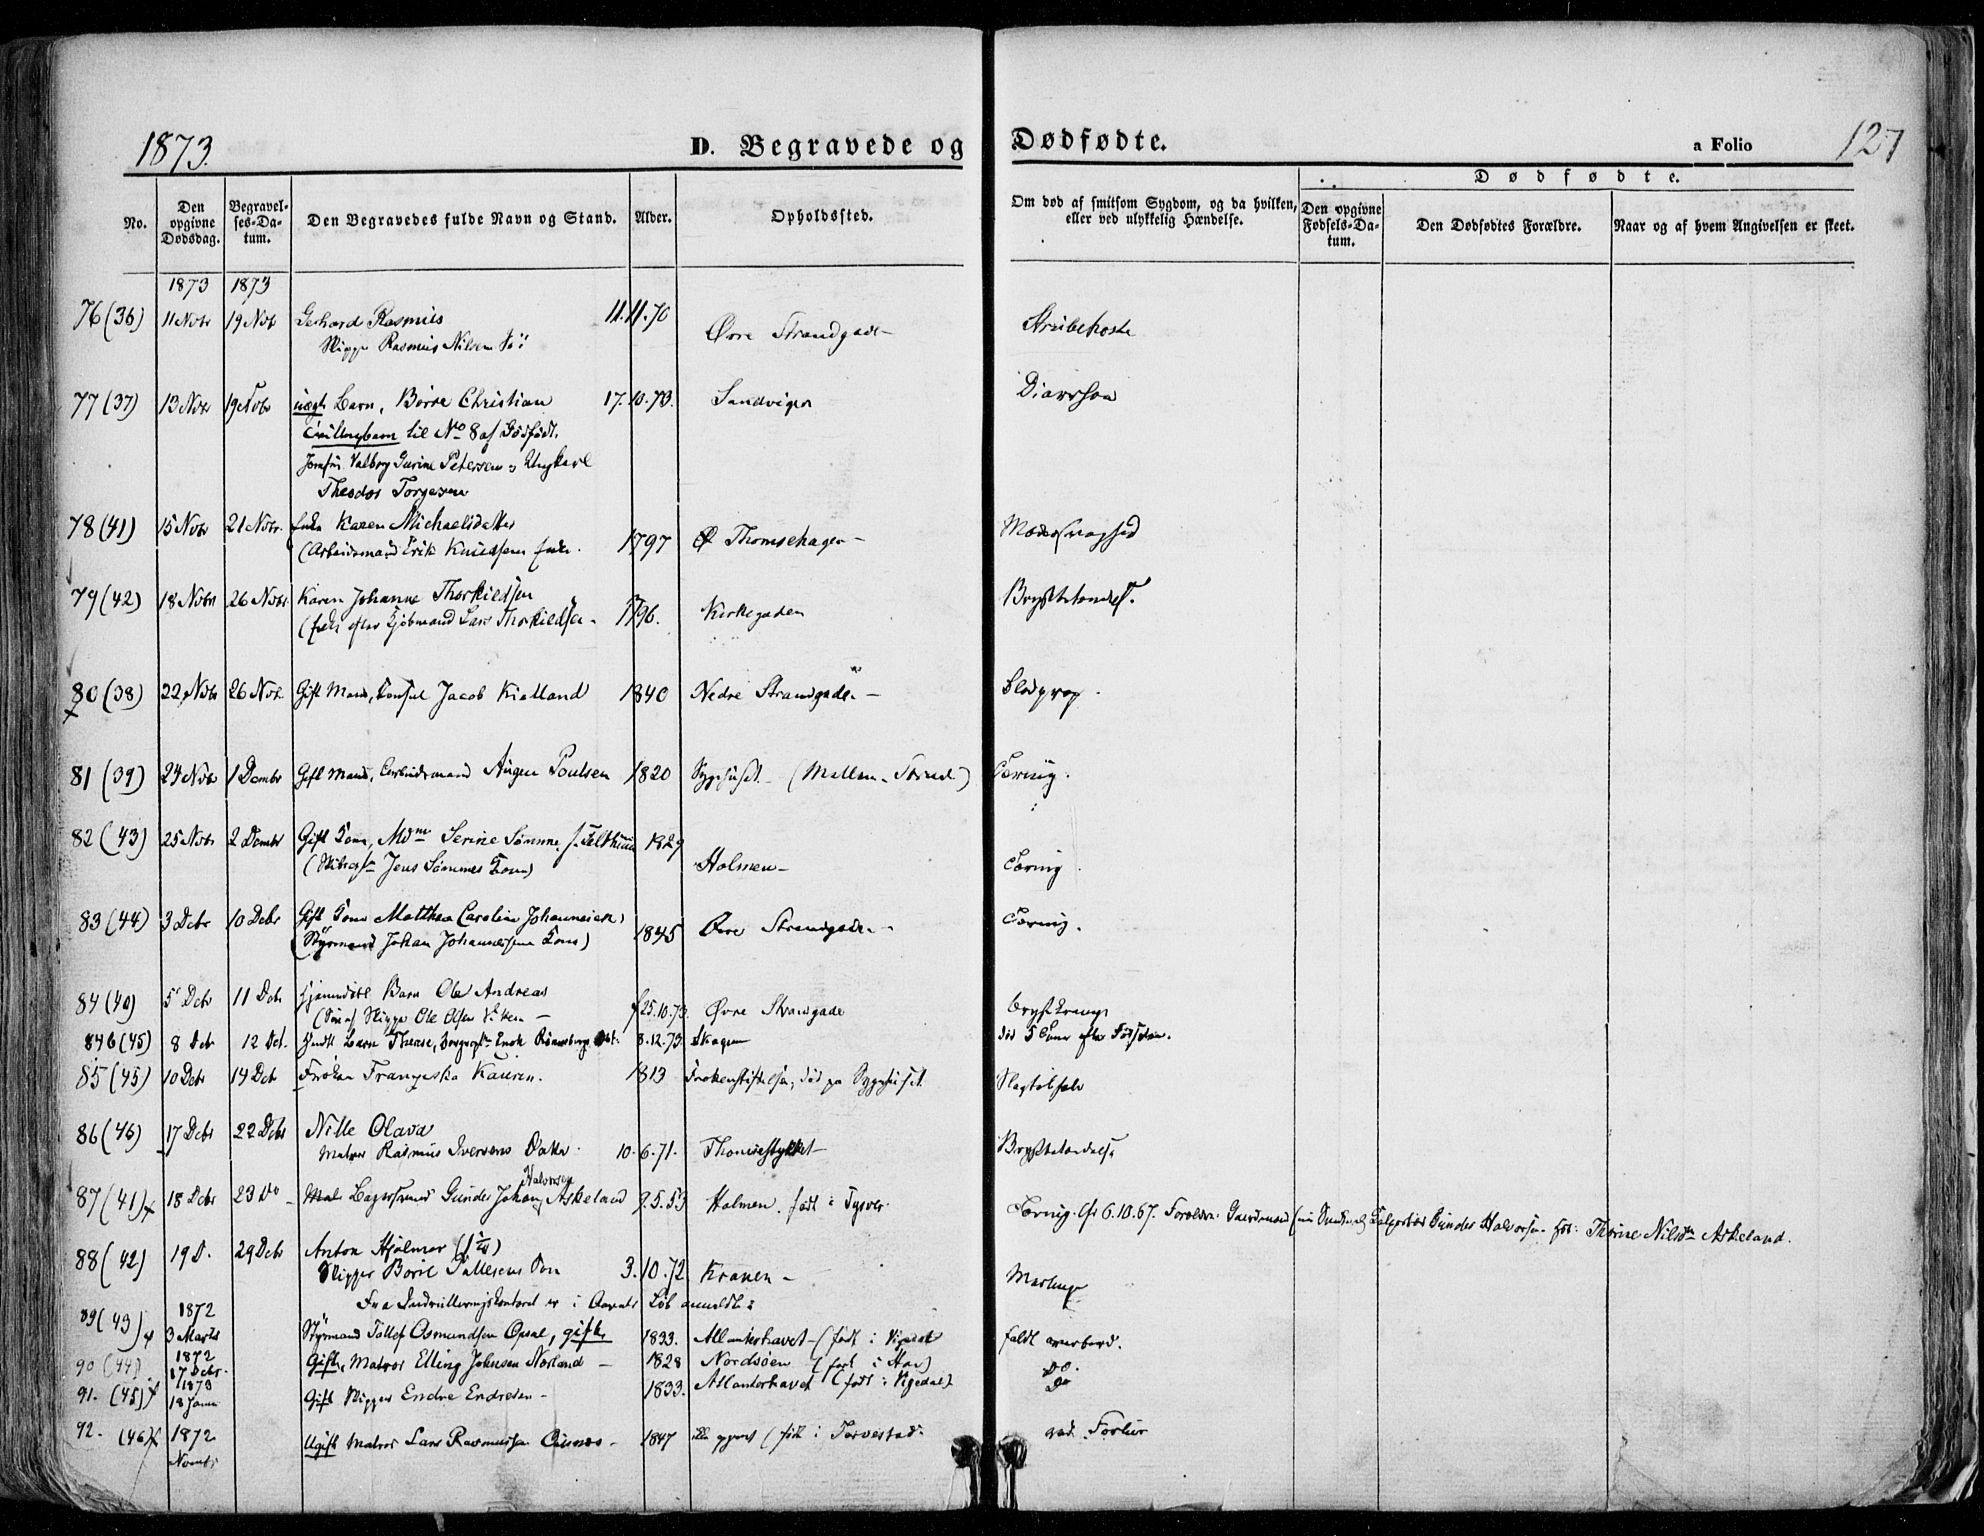 1873.
D. Begravede og Dødfødte.
a Folio 127
Dødfødte.
No.
Den opgivne Dødsdag.
Begravelses-Datum.
Den Begravedes fulde Navn og Stand.
Alder.
Opholdssted.
Om død af smitsom Sygdom, og da hvilken, eller ved ulykkelig Hændelse.
Den opgivne Fødsels-Datum.
Den Dødfødtes Forældre.
Naar og af hvem Angivelsen er skeet.
1873 1873
76 (36) 11 Novbr 19 Novb Gerhard Rasmus 11.11.70 Øvre Strandgade Strubehoste
Skipper Rasmus Nilsen
77 (37) 13 Novbr 19 Novbr uægte Barn, Børre Christian 17.10.73. Sandvigen Diarrhoa
Tvillingbarn til No 8 af Dødfødte.
Jomfru Valborg Gurine Petersen og Ungkarl
Theodor Torgersen
78 (41) 15 Novbr 21 Novbr. Enke Karen Michaelsdatter 1797 Ø Thomsehagen
(Arbeidsmand Erik Knudsens Enke.
79 (42) 18 Novbr 26 Novbr. Karen Johanne Thorkildsen 1796. Kirkegaden Brystbetændelse.
(Enke efter Kjøbmand Lars Thorkildsen
80 (38) 22 Novbr 26 Nov. Gift Mand, Consul Jacob Kielland 1840 Nedre Strandgade Blodprop.
81 (39) 24 Novbr 1 Decmbr Gift Mand, Arbeidsmand Augen Poulsen 1820 Sygehuset Tæring.
82 (43) 25 Novbr 2 Decmbr Gift Kone, Mdme Serine Sømme 1829 Holmen Tæring
Jens Sømmes Kone)
83 (44) 3 Decbr 10 Decbr Gift Kone Matthea Caroline Johannessen 1845 Øvre Strandgade Tæring.
(Styrmand Johan Johannessens Kone)
84 (40) 5 Decbr 11 Decbr Hjemmedøbt Barn Ole Andreas f 25.10.73. Øvre Strandgade Brystkrampe
(Søn af Skipper Ole Olsen
84b (45) 8 Decbr 12 Dec. Barn Therese, 8.12.73 Skagen død 5 Timer efter Fødselen.
85 (45) 10 Decbr 14 Decbr Frøken Franziska Kauren. 1813 Frøkenstiftelsen, død paa Sygehuset. Slagtilfælde
86 (46) 17 Decbr 22 Decbr Nille Olava 10.6.71. Thomsestykket Brystbetændelse
Matros Rasmus Iversens Datter.
87 (41) 18 Decbr 23 Do Gunder Johan Halvorsen Askeland 9.5.53 Holmen. født i Tysvær Tæring. 6.10.67. Forældre: Gunder Halvorsen Thorine Nilsdtr Askeland.
88 (42) 19 D. 29 Decbr Anton Hjalmar (1 ¼) 3.10.72. Kranen
Skipper Børre Pallesens Søn
Fra Indrulleringskontoret er i Aarets Løb anmeldt:
89 (43) 1872 3 Marts Styrmand Tollef Osmundsen Opsal, gift. 1833. Atlanterhavet (født i Vigedal faldt overbord.
90 (44) 1872 17 Decbr. Gift, Matros Elling Johnsen Norland 1828 Nordsøen Do.
91. (45) 1873 18 Janr Gift Skipper Endre Endresen 1833. Atlanterhavet (født i Vigedal) Do
92. (46) 1872 Novmbr Ugift Matros Lars Rasmussen 1847 (født i Torvestad. ved Forliis